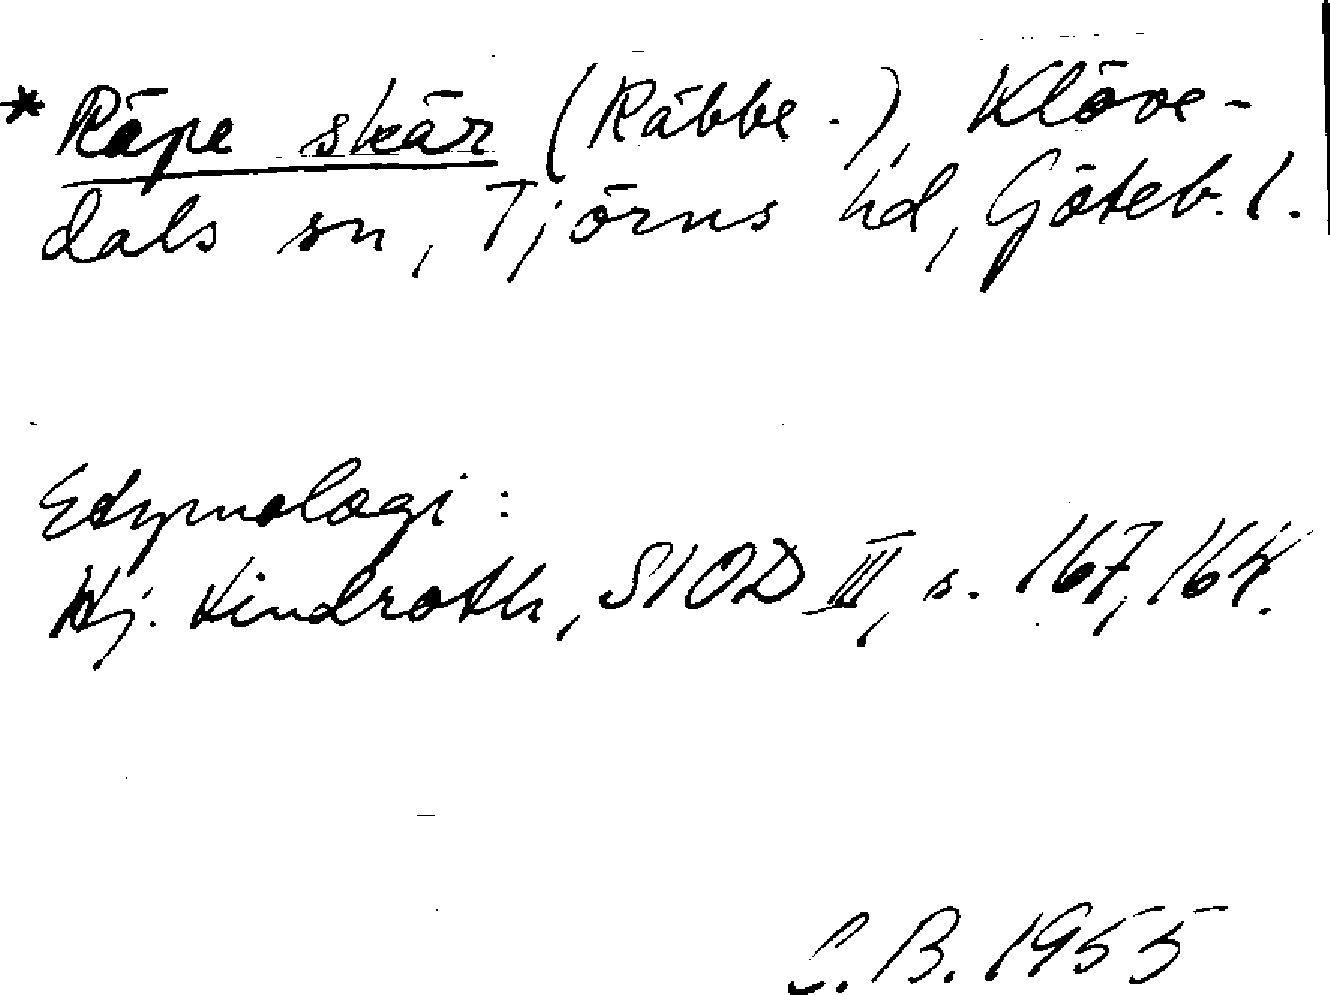 * Räpe skär (Räbbe -), Klöve-
dals sn, Tjörns hd, Göteb. l.
Etymologi:
Hj. Lindroth, SIOD III, s. 167, 164.
C.B. 1955